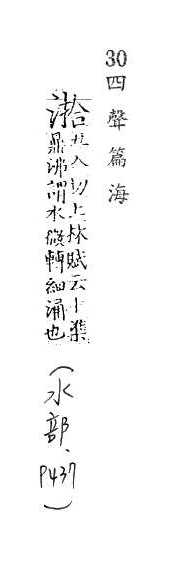 30四聲篇海
丑入切上林賦云十集
鼎沸謂水微轉細涌也
（水部、P437）